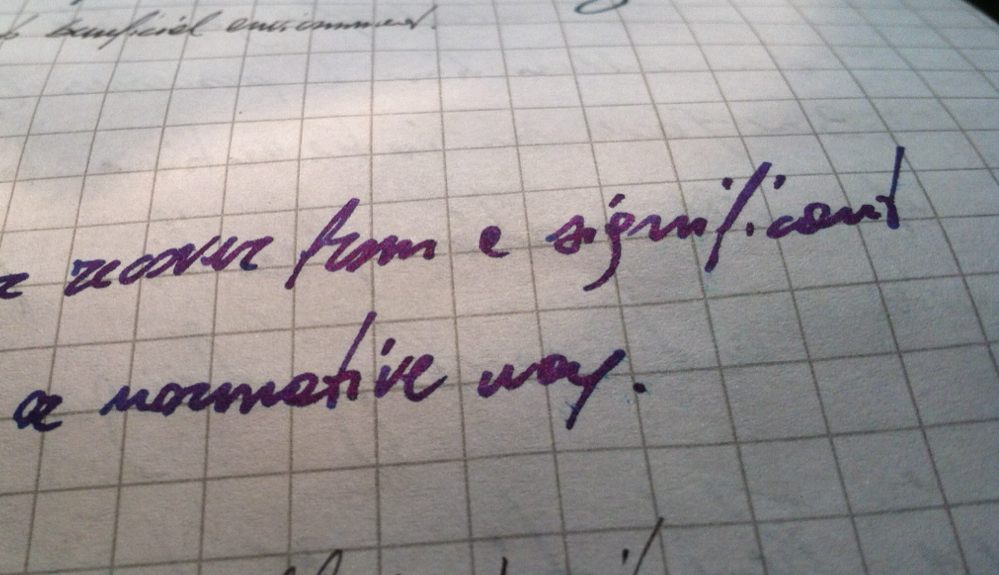 beneficial environment.
recover from a significant
a normative way.